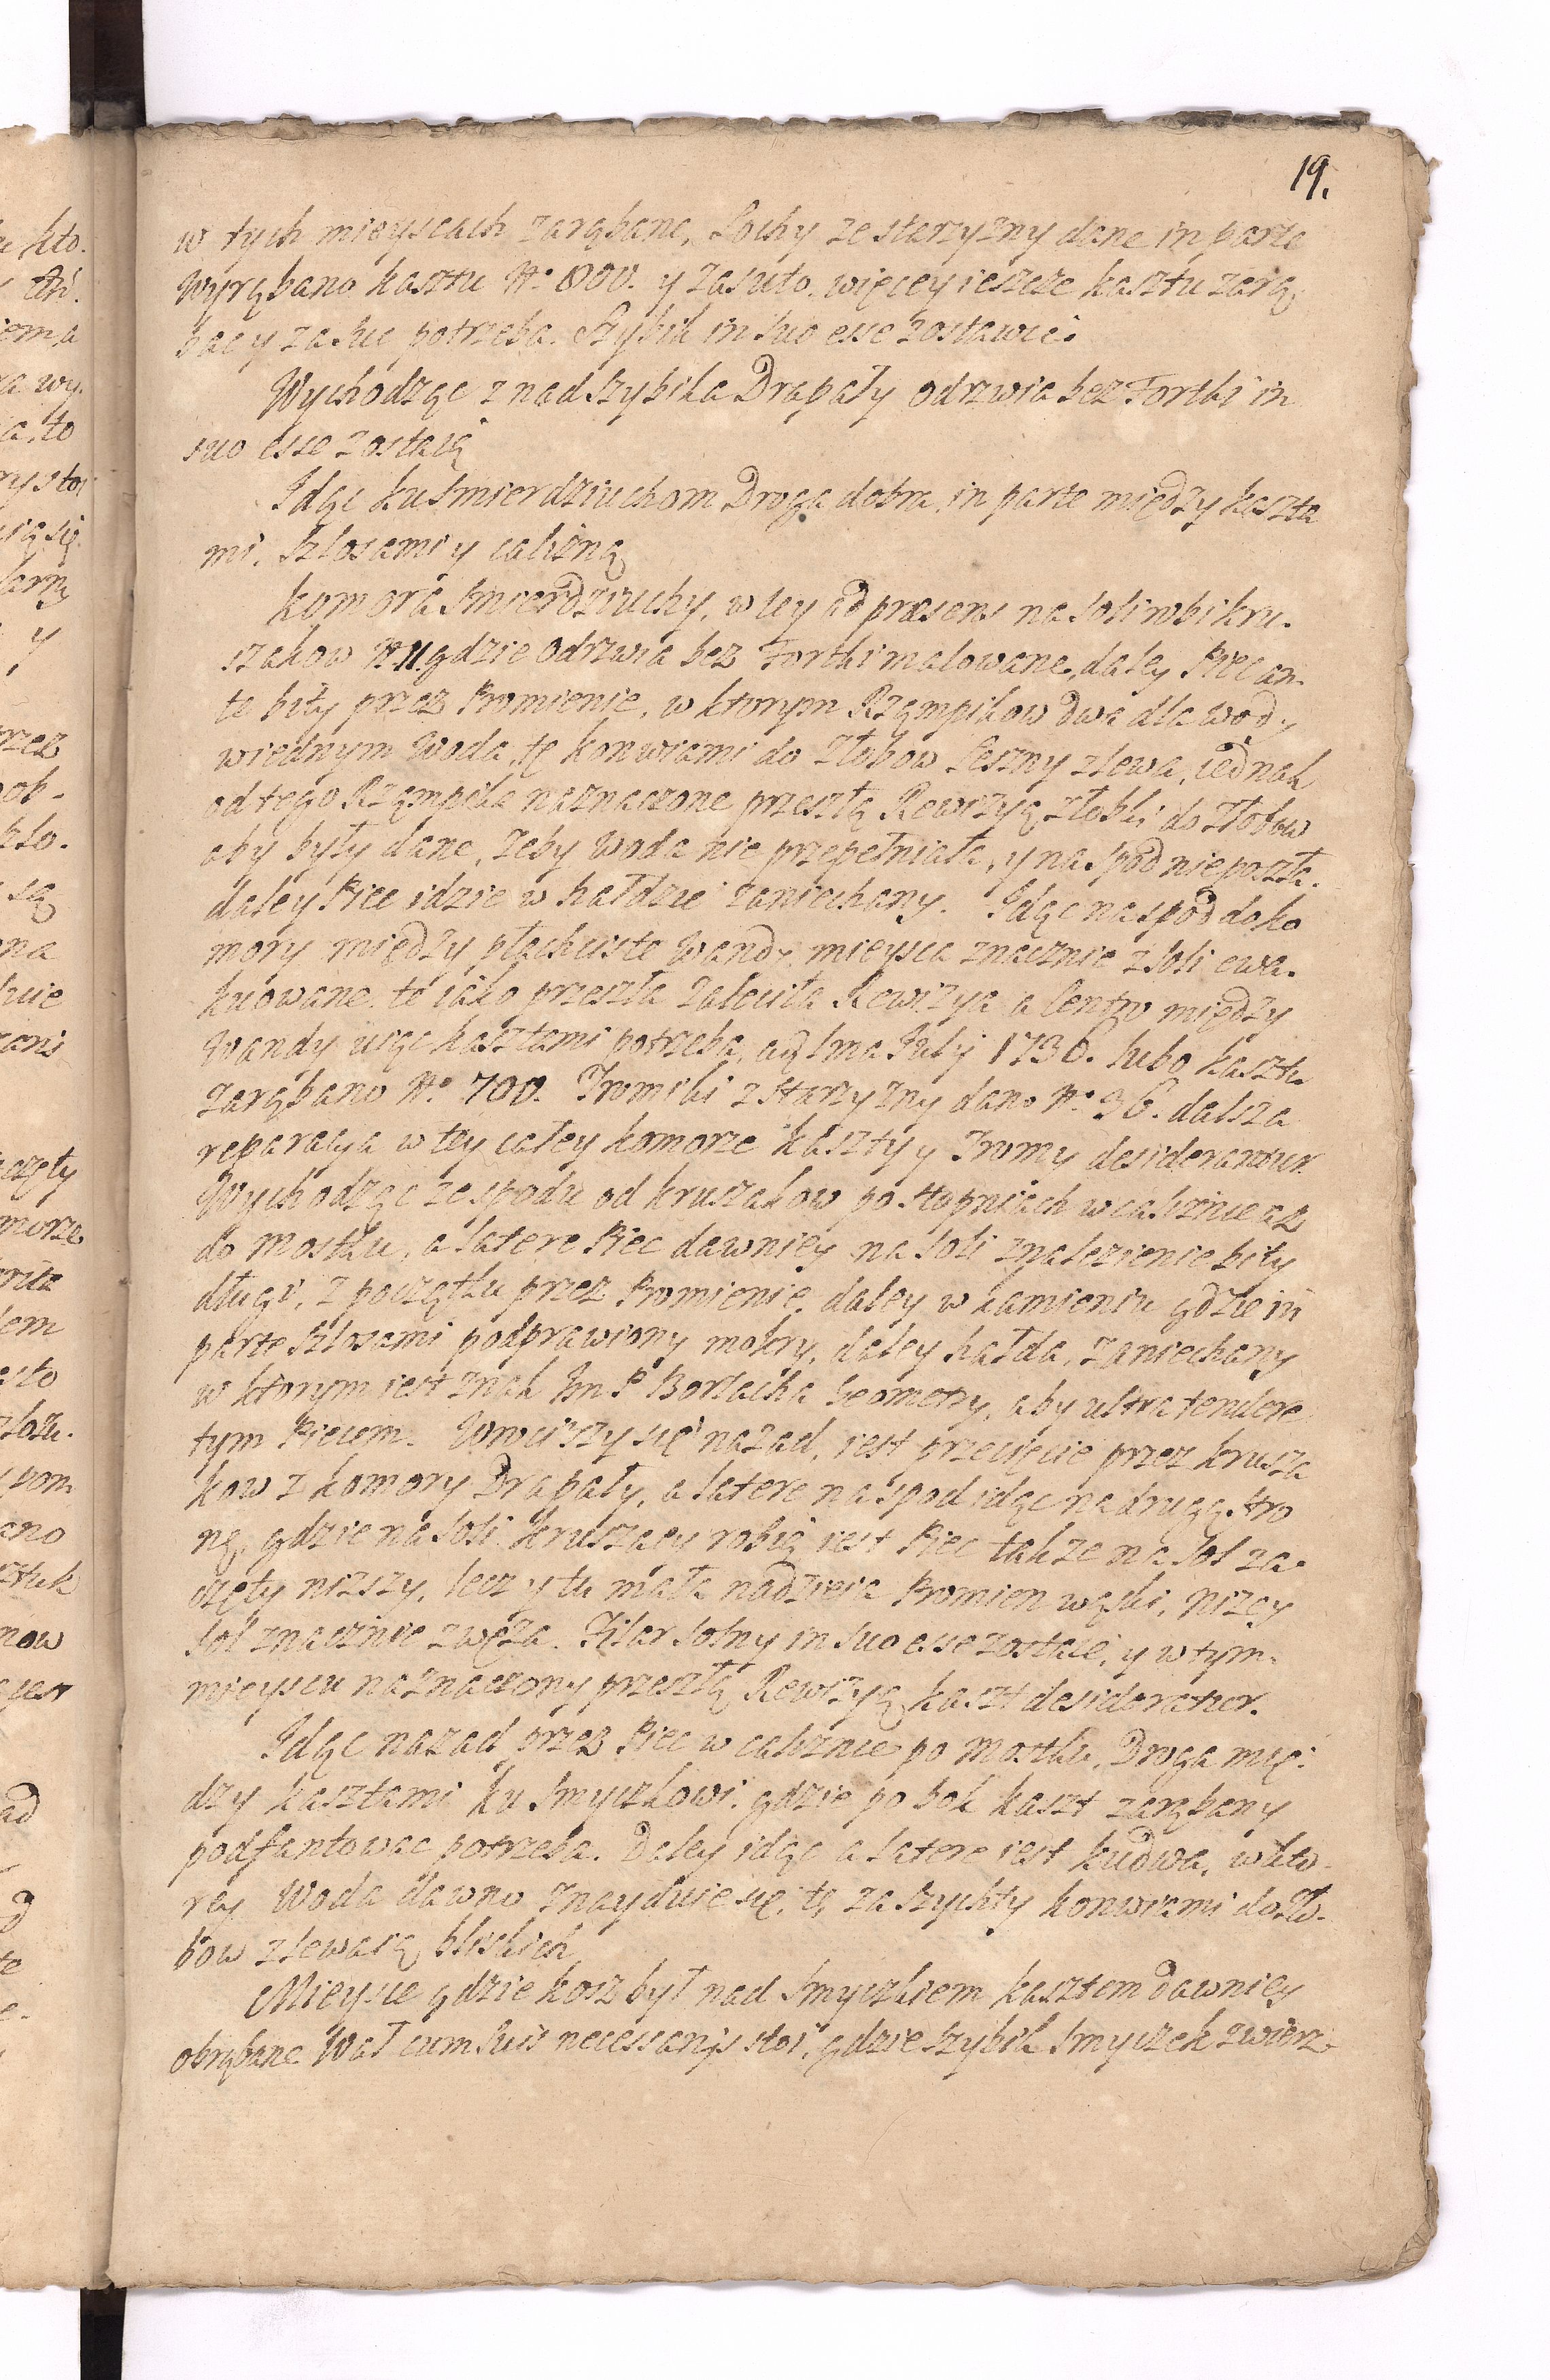 19.
w tych mieyscach zarąbane, Sochy ze starzyzny dane in parte
Wyrąbano kasztu No. 800. y zasuto. więcey ieszcze kasztu zarą
bac y zasuc potrzeba. Szybik in suo esse zostawić.
Wychodząc z nad Szybika Drapały odrzwia bez Fortki in
suo esse zostaią
Idąc ku Smierdziuchom Droga dobra, in parte między kaszta
mi. Szlosami y calizną
Komora Smierdziuchy, w tey ad præsens na soli robi kru-
szakow No. 11. gdzie Odrzwia bez Fortki malowane, daley Piec an-
te bity przez Promienie, w ktorym Rząmpikow dwa dla wod,
w iednym Woda, tę konwiami do Złobow Leszny zlewa, iednak
od tego Rząmpika naznaczone przeszłą Rewizyą złobki do Złobow
aby były dane, żeby woda nie przepełniała, y na spod nie poszła.
daley Piec idzie w hałdzie zaniechany. Idąc na spod do ko
mory między płachciste Wandy mieysca znacznie z soli ewa-
kuowane. te iako przeszła zaleciła Rewizya a Centro między
Wandy uiąc kasztami potrzeba, a 1ma July 1736. lubo kasztu
zarąbano No. 700. Tromiki z starzyzny dano No. 36. dalsza
reparacya w tey całey komorze kaszty y Tromy desiderantur.
Wychodząc ze spodu od kruszakow po stopniach w caliznie aż
do mostku, a latere Piec dawniey na soli znalezienie bity
długi, z początku przez Promienie, daley w kamieniu gdzie in
parte Szlosami podprawiony mokry, daley hałda, zaniechany
w ktorym iest znak Im P Borlacha Geometry, aby ultra tendere
tym Piecem. Wrociszy się nazad, iest przecięcie przez krusza
kow z komory Drapały, a latere na spod idąc na drugą stro
nę, gdzie na soli kruszacy robią iest Piec także na sol za-
częty niższy, lecz y tu mała nadzieia Promien wąski, niżey
sol znacznie zwęża. Filar solny in suo esse zostaie, y w tym
mieyscu naznaczony przeszłą Rewizyą kaszt desideratur.
Idąc nazad przez Piec w caliznie po Mostku, Droga mię-
dzy kasztami ku Smyczkowi. gdzie po bok kaszt zarąbany
podfantowac potrzeba. Daley idąc a latere iest kudwa, w kto-
rey Woda dawno znayduie się, tę za szychty konwiami do Zło-
bow zlewaią bliskich
Mieysce gdzie kosz był nad Smyczkiem kasztem dawniey
obrąbane. Wał cum suis necessarijs stoi, gdzie szybik Smyczek zwierz